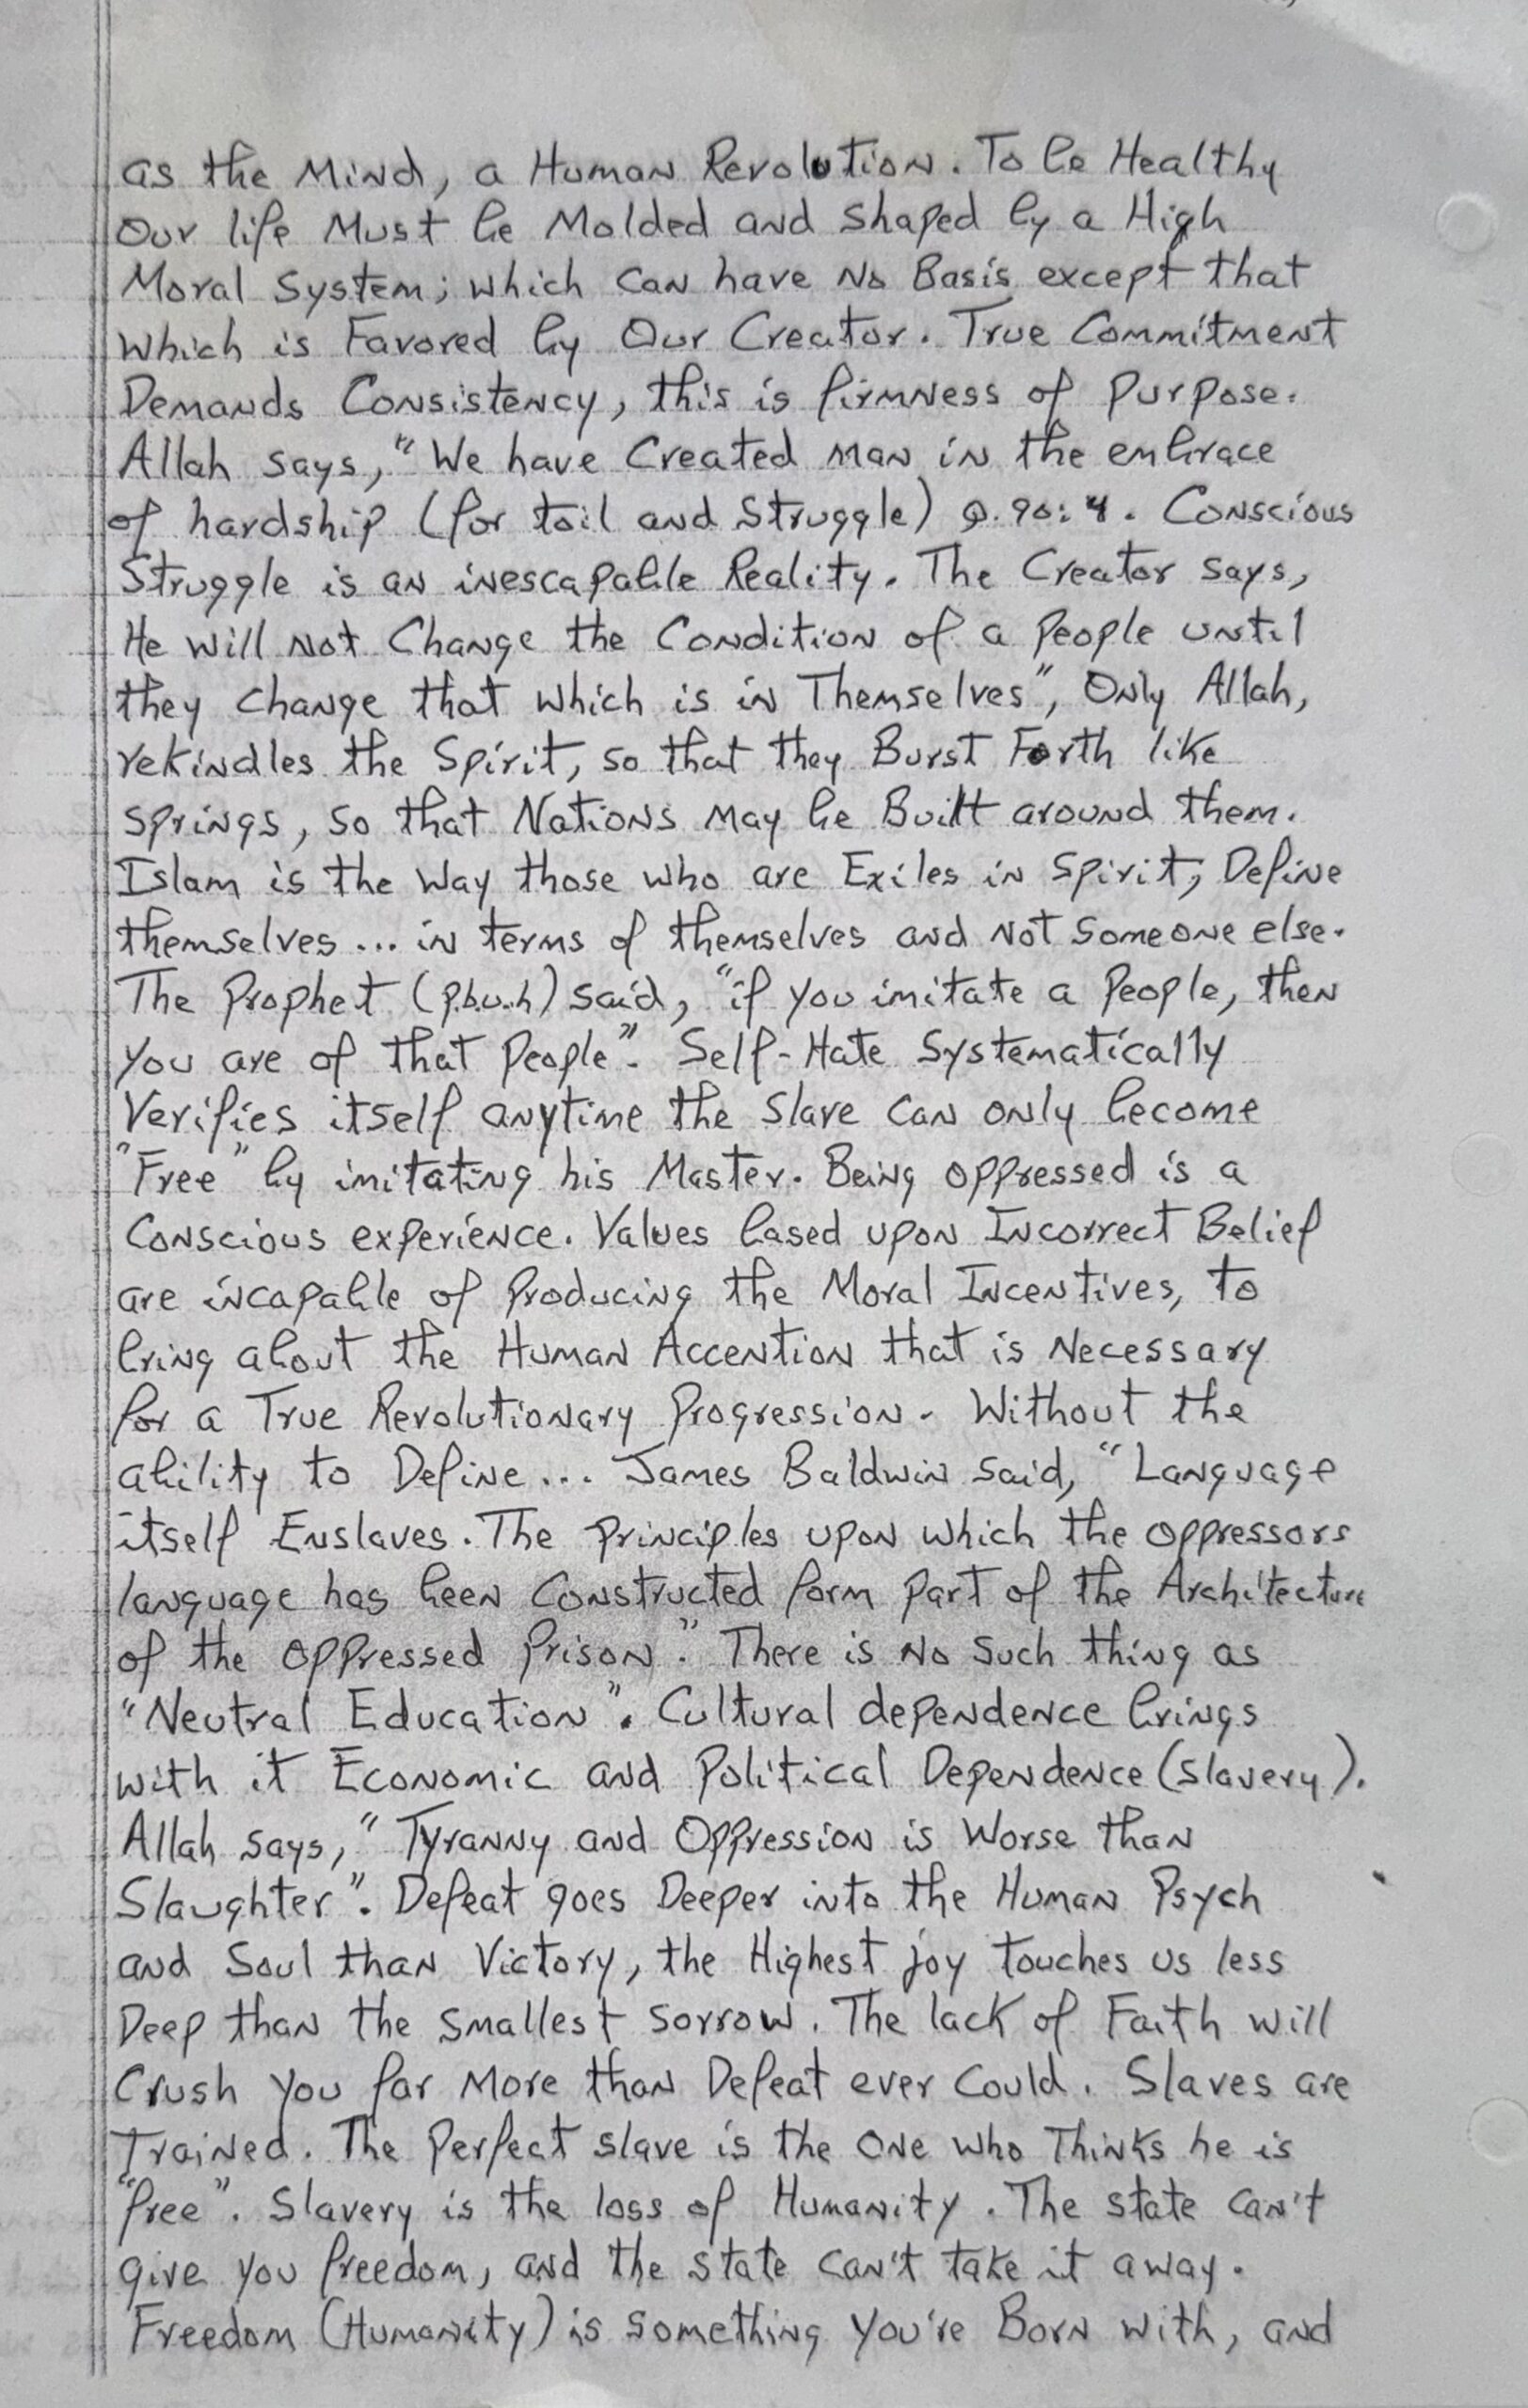 as the Mind, a Human Revolution. To be Healthy
Our life Must be Molded and shaped by a High
Moral System; which can have No Basis except that
which is Favored by Our Creator. True Commitment
Demands Consistency, this is firmness of purpose.
Allah says, "We have Created man in the embrace
of hardship (for toil and Struggle) Q.90:4. Conscious
Struggle is an inescapable Reality. The Creator says,
He will not Change the Condition of a People until
they change that which is in Themselves", Only Allah,
rekindles the Spirit, so that they Burst Forth like
springs, so that Nations may be Built around them.
Islam is the Way those who are Exiles in Spirit, Define
themselves... in terms of themselves and not someone else.
The Prophet (p.b.u.h) said, "if you imitate a People, then
you are of that People". Self-Hate Systematically
Verifies itself anytime the slave can only become
"Free" by imitating his Master. Being oppressed is a
Conscious experience. Values based upon Incorrect Belief
are incapable of producing the Moral Incentives, to
bring about the Human Accention that is Necessary
for a True Revolutionary Progression. Without the
ability to Define... James Baldwin said, "Language
itself Enslaves. The principles upon which the oppressors
language has been Constructed form part of the Architecture
of the oppressed prison." There is No such thing as
"Neutral Education". Cultural dependence brings
with it Economic and Political Dependence (slavery).
Allah says, "Tyranny and Oppression is Worse than
Slaughter". Defeat goes Deeper into the Human Psych
and Soul than Victory, the Highest joy touches us less
Deep than the smallest sorrow. The lack of Faith will
Crush you far More than Defeat ever Could. Slaves are
Trained. The Perfect slave is the one who Thinks he is
"free". Slavery is the loss of Humanity. The state can't
give you freedom, and the state can't take it away.
Freedom (Humanity) is something you're Born with, and